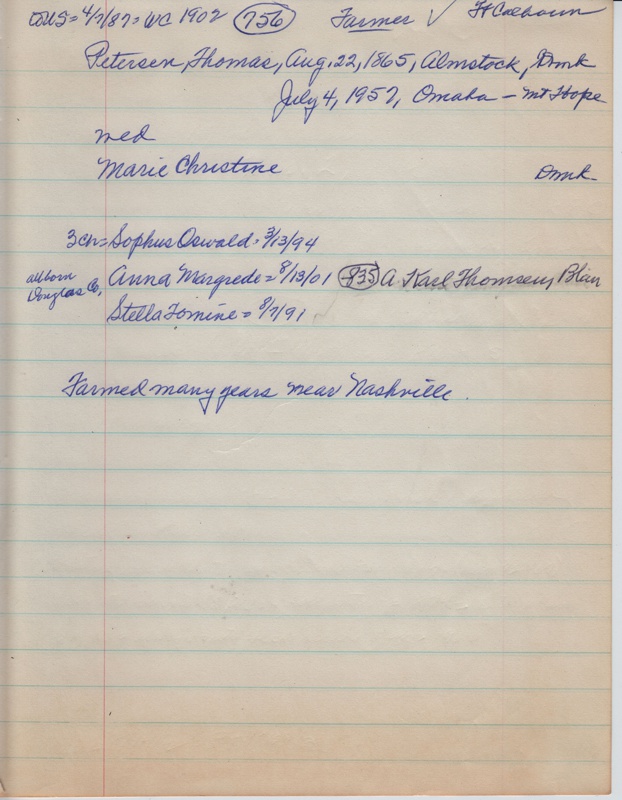 toUS = 4/7/87 = WC 1902 (756) Farmer ✓ Ft Calhoun
Petersen, Thomas, Aug. 22, 1865, Almstock, Dmk
July 4, 1957, Omaha - Mt Hope
med
Marie Christine Dmk
3 ch = Sophus Oswald - 3/13/94
all born Douglas Co, Anna Margrede = 8/13/01 (835) A. Karl Thomsen, Blair
Stella Tomine = 8/7/91
Farmed many years near Nashville.